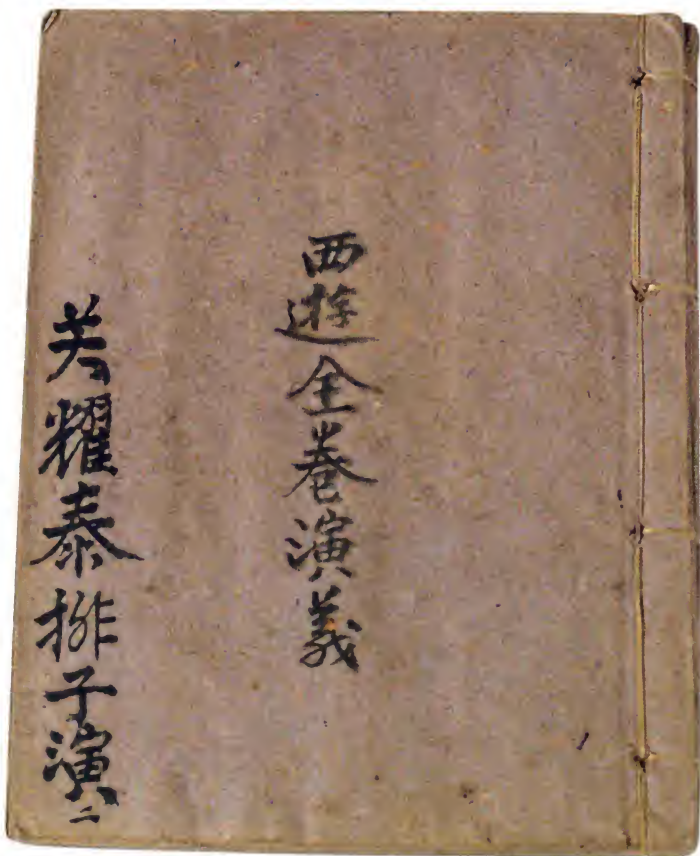 西遊全巻演義
耀泰排子演二